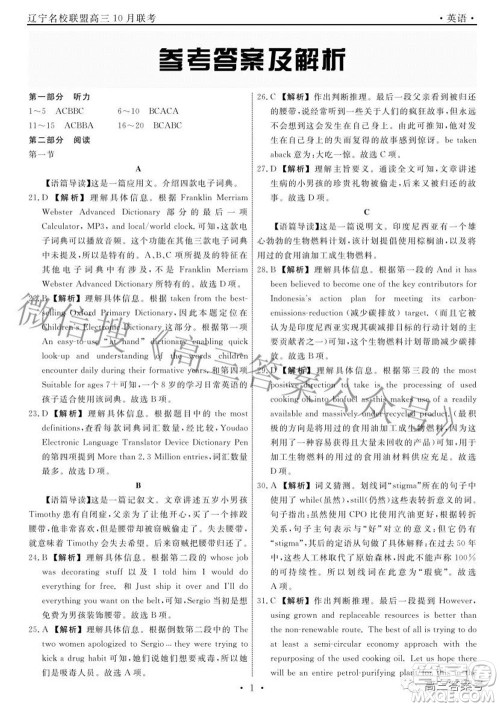 辽宁名校联盟高三10月联考
·英语·
参考答案及解析
第一部分 听力
1～5 ACBBC 6～10 BCACA
11～15 ACBBA 16～20 BCABC
第二部分 阅读
第一节
A
【语篇导读】这是一篇应用文。介绍四款电子词典。
21. D 【解析】理解具体信息。根据 Franklin Merriam
Webster Advanced Dictionary 部分的最后一项
Calculator, MP3, and local/world clock. 可知,这个电
子词典可以播放音频。这个功能在其他三个电子词
典中是没有的。故选 D 项。
22. B 【解析】理解具体信息。根据 taken from the best-
selling Oxford Primary Dictionary 可知,这款定位为
Children's Electronic Dictionary。第二项中的
An easy-to-use "At hand" dictionary, enabling quick
access to the meanings of the words children
encounter daily during their formative years. 和第四项
Suitable for ages 7+ 可知,一个 8 岁的学习日常英语的
孩子适合使用该词典。故选 B 项。
23. D 【解析】理解具体信息。根据题目中的 the most
definitions, 查看四款词典词汇数量,比较可知, Youdao
Electronic Language Translator Device Dictionary Pen
的第四项提到 More than 2, 3 Million entries,词汇数量
最多。故选 D 项。
B
【语篇导读】这是一篇记叙文。文章讲述八岁小男孩
Timothy 患有自闭症,父母为他千辛万苦买到一个摔跤
腰带,他非常喜欢。但是腰带却被盗贼偷走了。无辜的
Timothy 会为盗贼开脱,觉得他们只是太喜欢腰带才会
这样做。后来窃贼把腰带归还。
24. B 【解析】理解具体信息。根据第二段的 whose job
was decorating stuff 以及 I told him I would do
everything for free. 和 Just ship it over and I'll do
everything you want on the belt. 可知, Sergio 答应了
为小男孩免费装饰腰带。故选 B 项。
25. A 【解析】理解具体信息。根据倒数第二段中的 The
two women apologized to Sergio... they are trying to
kick a drug habit 可知,她们想戒毒。故选 A 项。
26. C 【解析】作出判断推理。最后一段父亲看到被归
还的腰带,他说你听到一些关于别人的疯狂的事情,但
永远不会想到会发生在自己身上。由此可知,他没想
到这件事会发生在自己身上,因此他非常惊讶。be taken
aback 意为:大吃一惊。故选 C 项。
27. D 【解析】理解主旨要义。通读全文可知,文章主要
讲述一个小男孩的珍贵礼物被偷走了,但是后来又被
归还了。故选 D 项。
C
【语篇导读】这是一篇说明文。印度尼西亚有一个雄
心勃勃的生物燃料计划,该计划提倡使用棕榈油,以及
将用过的食用油加工成生物燃料。
28. B 【解析】理解具体信息。根据第一段的 And it has
been believed to be one of the key contributors for
Indonesia's action plan for meeting its carbon-
emissions-reduction (减少碳排放) target, (而且它一直被
认为是印度尼西亚实现其碳减排目标的行动计划的主要
贡献者之一)可知,它有助于减少碳排放。故选 B 项。
29. D 【解析】理解具体信息。根据第三段的 The most
positive direction is to take the processing of used
cooking oil into biofuel as this makes use of a readily
available and massively under-recycled product. (最积
极的方向是将用过的食用油加工成生物燃料,因为这
利用了一种现成的、大量未被回收的产品)可知,用于
加工生物燃料的食用油材料供应充足。故选 D 项。
30. A 【解析】词义猜测。划线词 "stigma" 所在句子中
的 while (虽然), still (仍然) 这些词可知,前后句子是一
个转折的关系。虽然使用 CPO 比使用汽油要环保,但
是它仍然有 "stigma",划线词后的句子对此作了具体的
解释,它来自人工取代的原始森林,因此不可能 100%
的可持续性。所以此处意为 "瑕疵"。故选 A 项。
31. C 【解析】作出判断推理。根据最后一段的 However,
using grown and replaceable resources is better than
the non-renewable route. The used cooking oil route
is a semi-circular economy approach with a currently
wasted resource, so this has potential to be an
excellent way in part petrol-pushing for this part of
· 1 ·
微信搜《高三答案公众号》
高三答案号